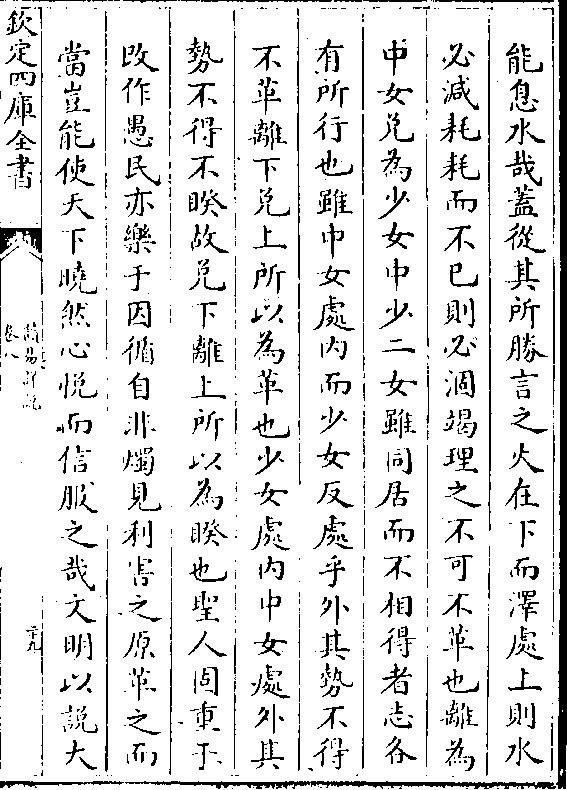 能息水哉蓋從其所勝言之火在下而澤處上則水
必減耗耗而不已則必涸竭理之不可不革也離為
中女兌為少女中少二女雖同居而不相得者志各
有所行也雖中女處内而少女反處乎外其勢不得
不革離下兌上所以為革也少女處内中女處外其
勢不得不睽故兌下離上所以為睽也聖人固重于
改作愚民亦樂于因循自非燭見利害之原革之而
當豈能使天下曉然心悦而信服之哉文明以說大
欽定四庫全書
卷八